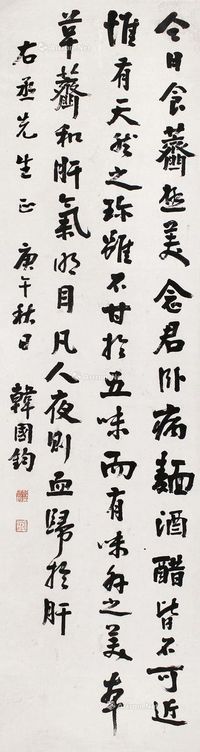 今日食薺極美念君卧病麵酒醋皆不可近
惟有天然之珍雖不甘於五味而有味外之美本
草薺和肝氣明目凡人夜則血歸於肝
右丞先生正 庚午秋日 韓國鈞